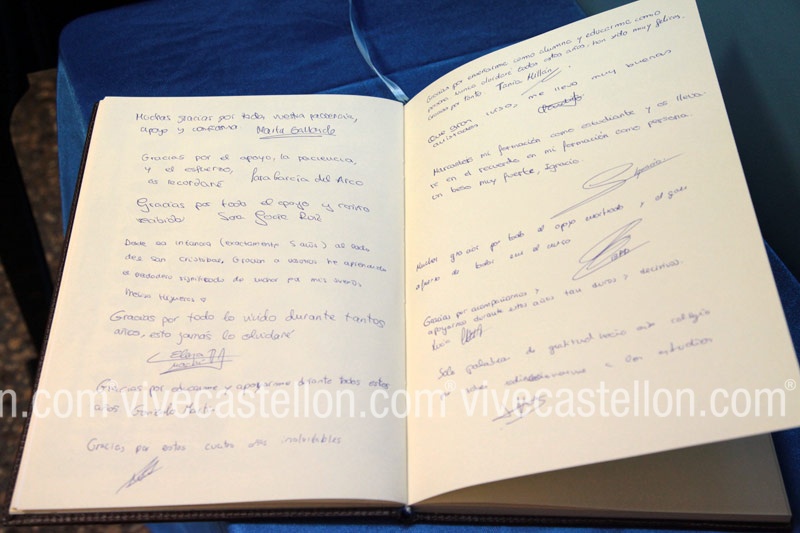 Muchas gracias por toda vuestra paciencia,
apoyo y confianza. Marta Gallardo
Gracias por el apoyo, la paciencia,
y el esfuerzo,
os recordaré Sara García del Arco
Gracias por todo el apoyo y cariño
recibido Sara
Desde la infancia (exactamente 5 años) al lado
del san cristobal, Gracias a vosotros he aprendido
el verdadero significado de luchar por mis sueños.
Gracias por todo lo vivido durante tantos
años, esto jamás lo olvidaré
Elena
Gracias por educarme y apoyarme durante todos estos
años. Gonzalo
Gracias por estos cuatro años inolvidables
Gracias por enseñarme como alumna y educarme como
persona. Nunca olvidaré todos estos años, han sido muy felices.
Gracias por tanto. Tania Millán
Que gran curso, me llevo muy buenas
amistades
Marcasteis mi formación como estudiante y os lleva-
ré en el recuerdo en mi formación como persona.
Un beso muy fuerte, Ignacio.
Ignacio
Muchas gracias por todo el apoyo mostrado y el gran
de todos en el curso
Gracias por acompañarnos y
apoyarnos durante estos años tan duros y decisivos.
Lucía
Solo palabras de gratitud hacia este colegio
a los estudios
n.com® vivecastellon.com® vivecastellon.com® v